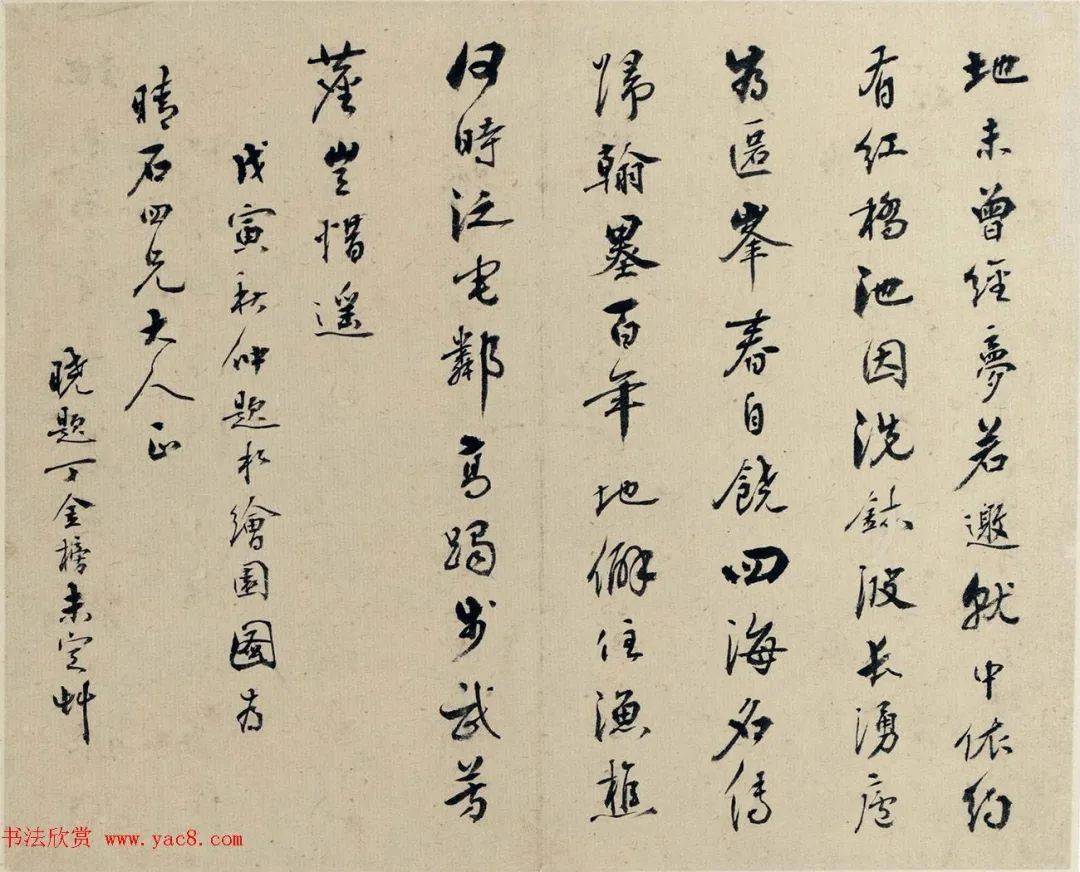 地未曾經夢若邀就中依約
有紅橋池因洗鉢波長湧廬
為匡峯春自饒四海名傳
歸翰墨百年地僻住漁樵
何時泛宅鄰高躅步武芳
塵豈惜遥
戊寅秋仲題於繪園圖為
晴石四兄大人正
曉題丁金榜未定艸
书法欣赏 www.yac8.com